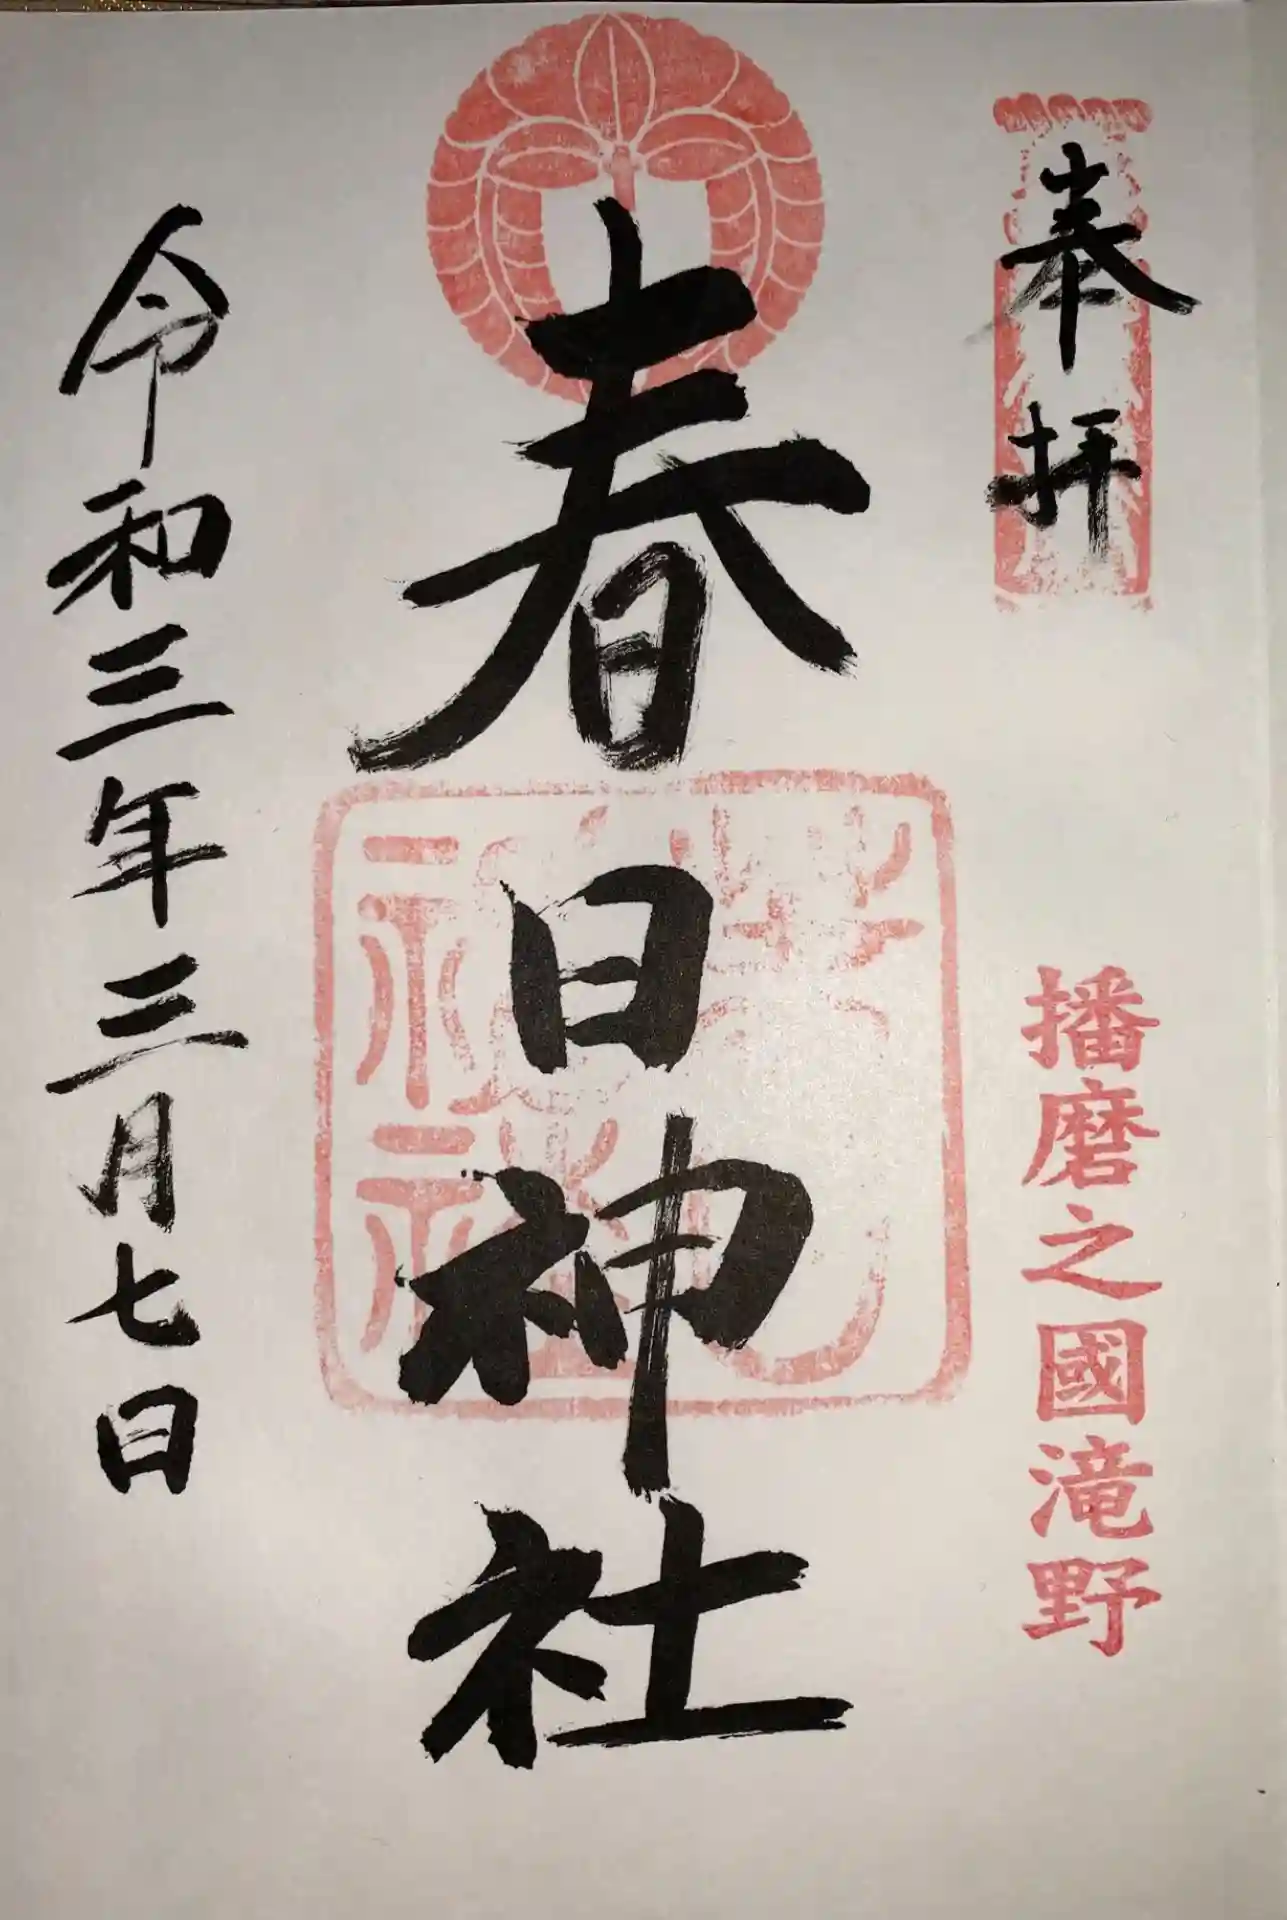 奉拝
播磨之國滝野
春日神社
令和三年三月七日